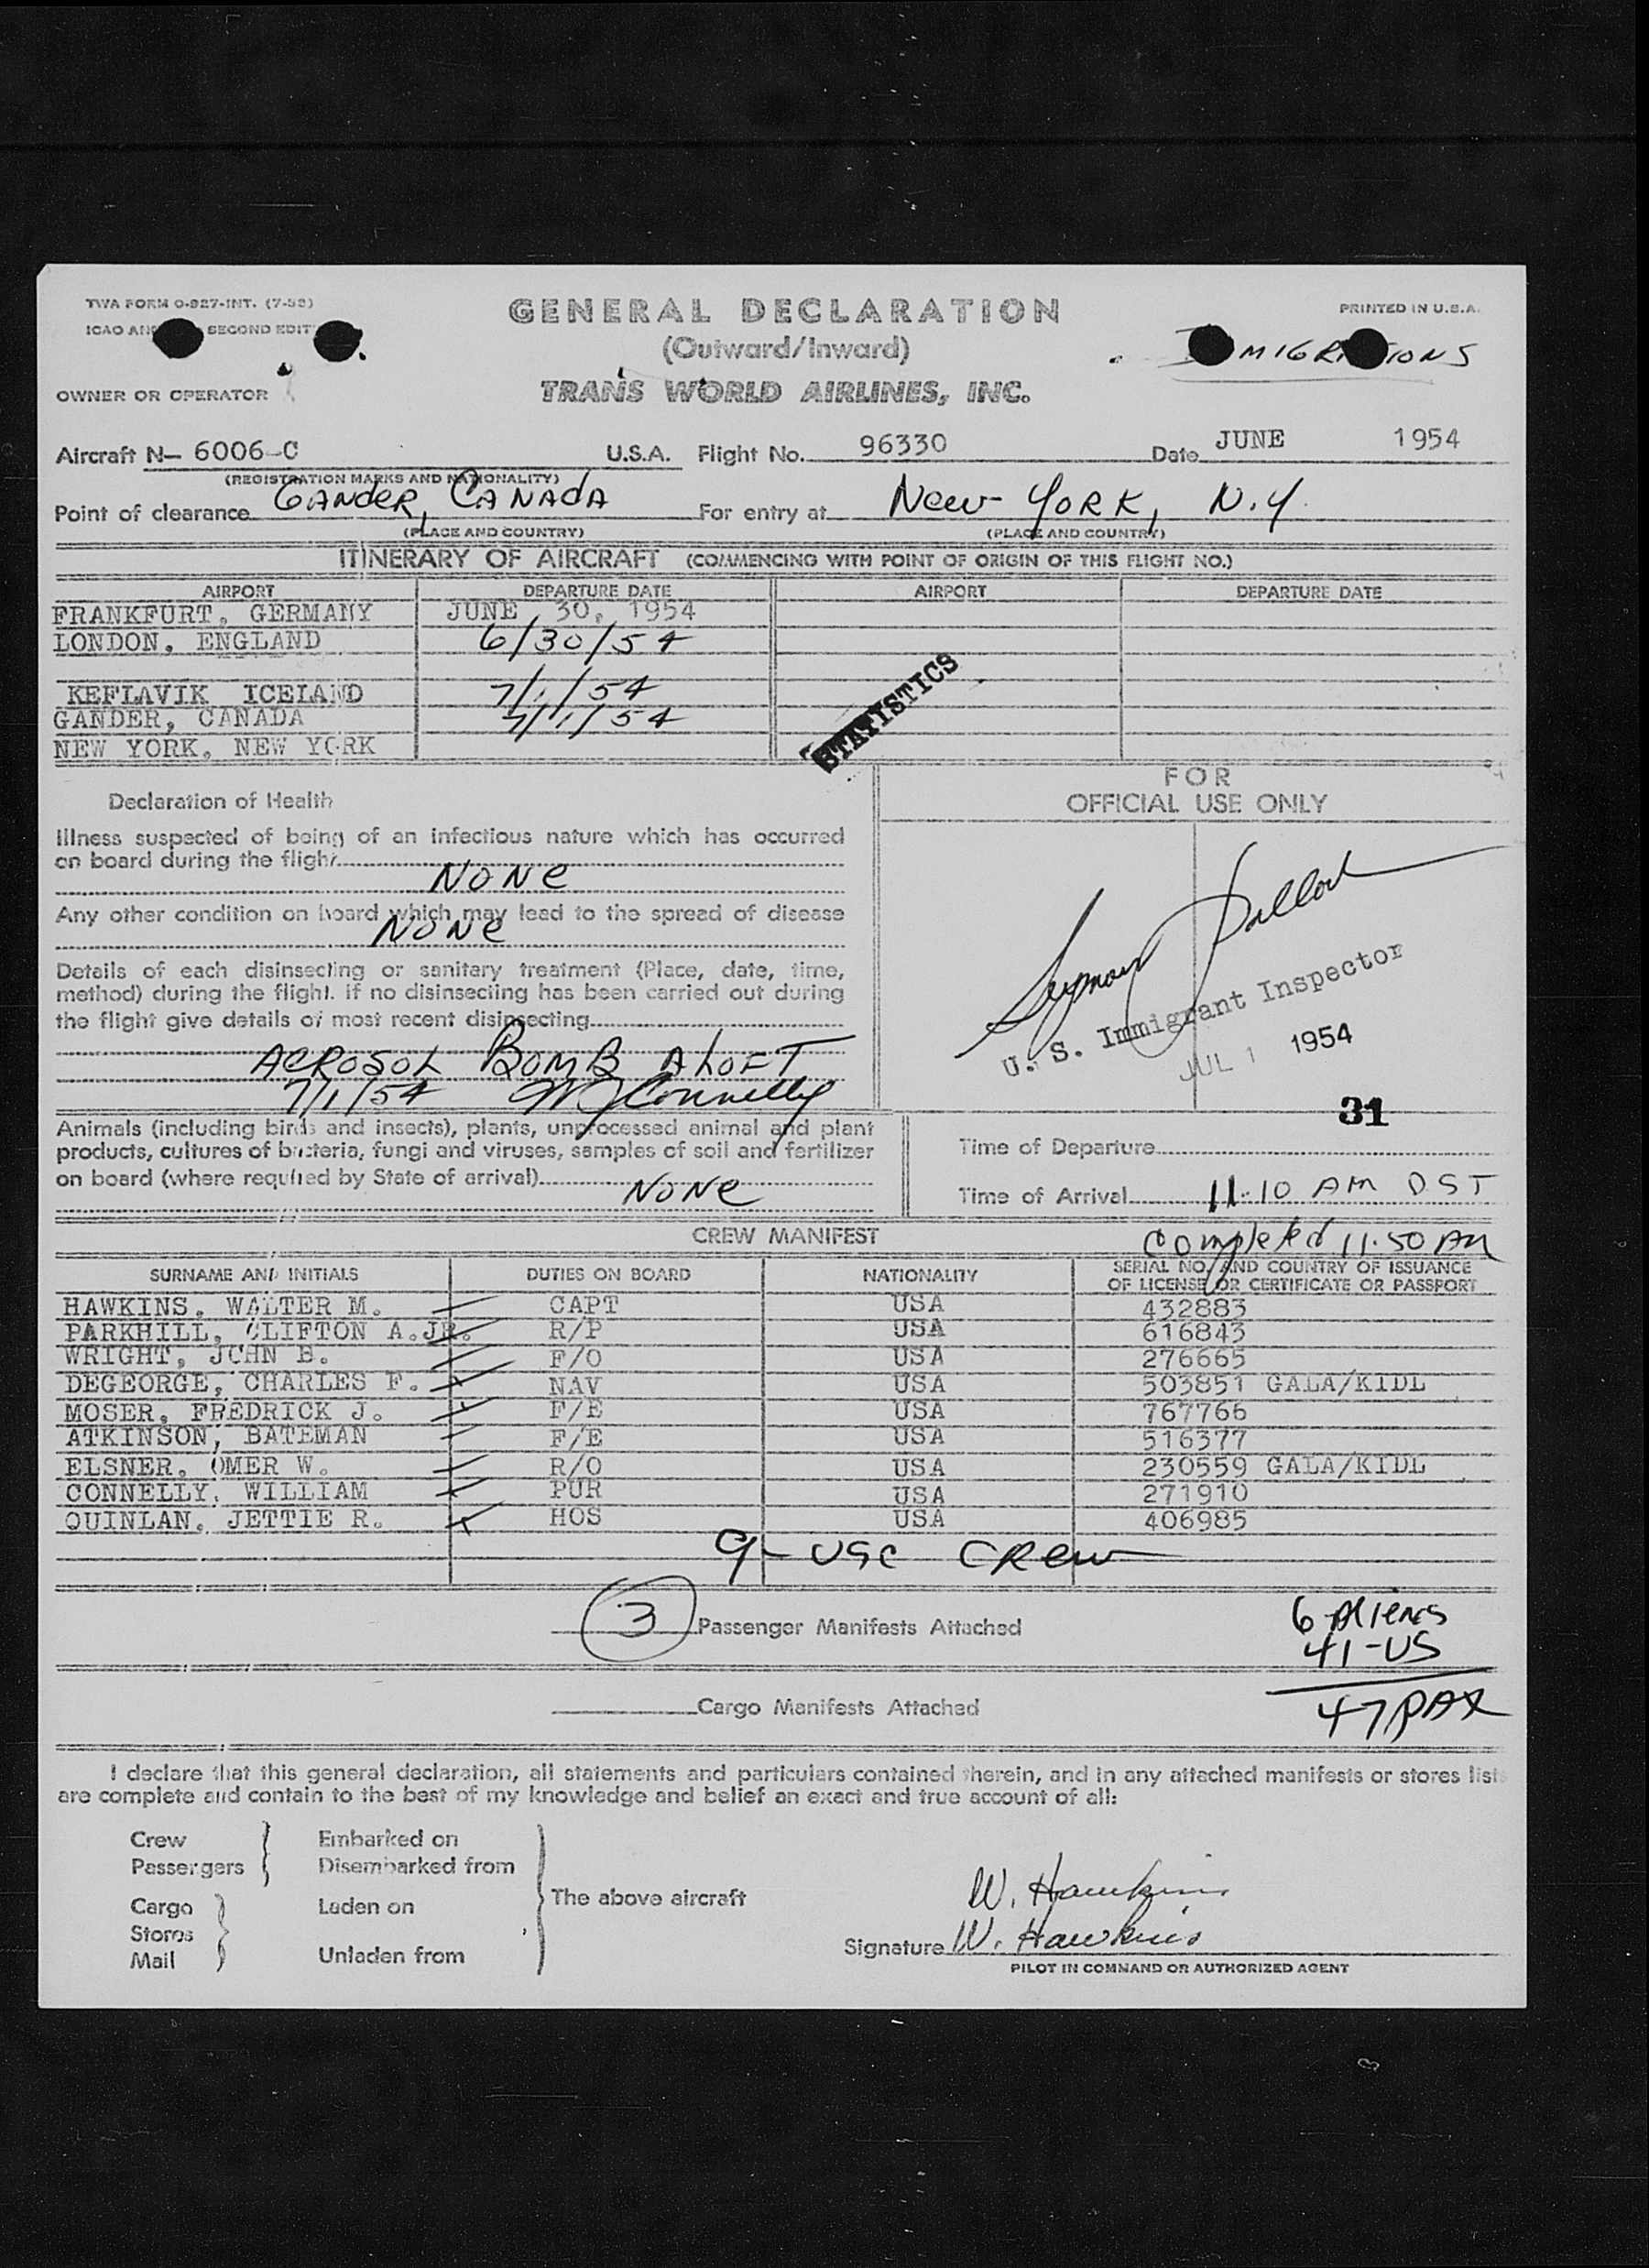 TWA FORM O-827-INT. (7-52)
GENERAL DECLARATION
PRINTED IN U.S.A.
ICAO SECOND
(Outward/Inward)
OWNER OR OPERATOR
TRANS WORLD AIRLINES, INC.
Aircraft N— 6006-C U.S.A. Flight No. 96330 Date JUNE 1954
(REGISTRATION MARKS AND NATIONALITY)
Point of clearance GANDER, CANADA For entry at New YORK, N.Y.
(PLACE AND COUNTRY) (PLACE AND COUNTRY)
ITINERARY OF AIRCRAFT (COMMENCING WITH POINT OF ORIGIN OF THIS FLIGHT NO.)
AIRPORT DEPARTURE DATE AIRPORT DEPARTURE DATE
FRANKFURT, GERMANY JUNE 30, 1954
LONDON, ENGLAND 6/30/54
KEFLAVIK ICELAND 7/1/54
GANDER, CANADA 7/1/54
NEW YORK, NEW YORK
STATISTICS
FOR
OFFICIAL USE ONLY
Declaration of Health
Illness suspected of being of an infectious nature which has occurred
on board during the flight
NONE
Any other condition on board which may lead to the spread of disease
NONE
Details of each disinsecting or sanitary treatment (Place, date, time,
method) during the flight. If no disinsecting has been carried out during
the flight give details of most recent disinsecting
AEROSOL BOMB ALOFT
7/1/54 Connelly
U. S. Immigrant Inspector
JUL 1 1954
31
Animals (including birds and insects), plants, unprocessed animal and plant
products, cultures of bacteria, fungi and viruses, samples of soil and fertilizer
on board (where required by State of arrival)
NONE
Time of Departure
Time of Arrival 11.10 AM DST
CREW MANIFEST
Completed 11.50 AM
SURNAME AND INITIALS DUTIES ON BOARD NATIONALITY SERIAL NO. AND COUNTRY OF ISSUANCE
OF LICENSE OR CERTIFICATE OR PASSPORT
HAWKINS, WALTER M. CAPT USA 432883
PARKHILL, CLIFTON A.JR. R/P USA 616843
WRIGHT, JOHN B. F/O USA 276665
DEGEORGE, CHARLES F. NAV USA 503851 GALA/KIDL
MOSER, FREDRICK J. F/E USA 767766
ATKINSON, BATEMAN F/E USA 516377
ELSNER, OMER W. R/O USA 230559 GALA/KIDL
CONNELLY, WILLIAM PUR USA 271910
QUINLAN, JETTIE R. HOS USA 406985
9- USC CREW
3 Passenger Manifests Attached
6 Aliens
41-US
Cargo Manifests Attached
47 PAX
I declare that this general declaration, all statements and particulars contained therein, and in any attached manifests or stores lists
are complete and contain to the best of my knowledge and belief an exact and true account of all:
Crew Embarked on
Passengers Disembarked from
Cargo Laden on The above aircraft
Stores
Mail Unladen from
W. Hawkins
Signature W. Hawkins
PILOT IN COMMAND OR AUTHORIZED AGENT